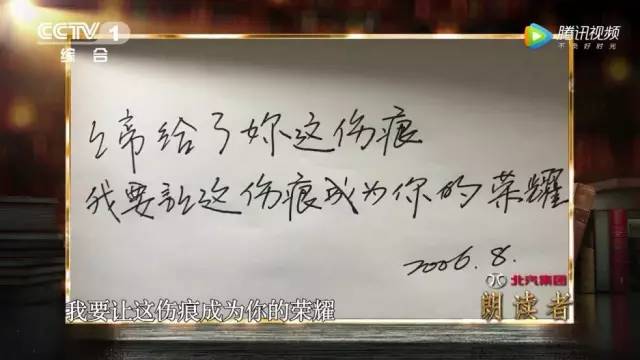 CCTV 1
综合
腾讯视频
不负好时光
上帝给了妳这伤痕
我要让这伤痕成为你的荣耀
2006.8.
北汽集团
朗读者
我要让这伤痕成为你的荣耀